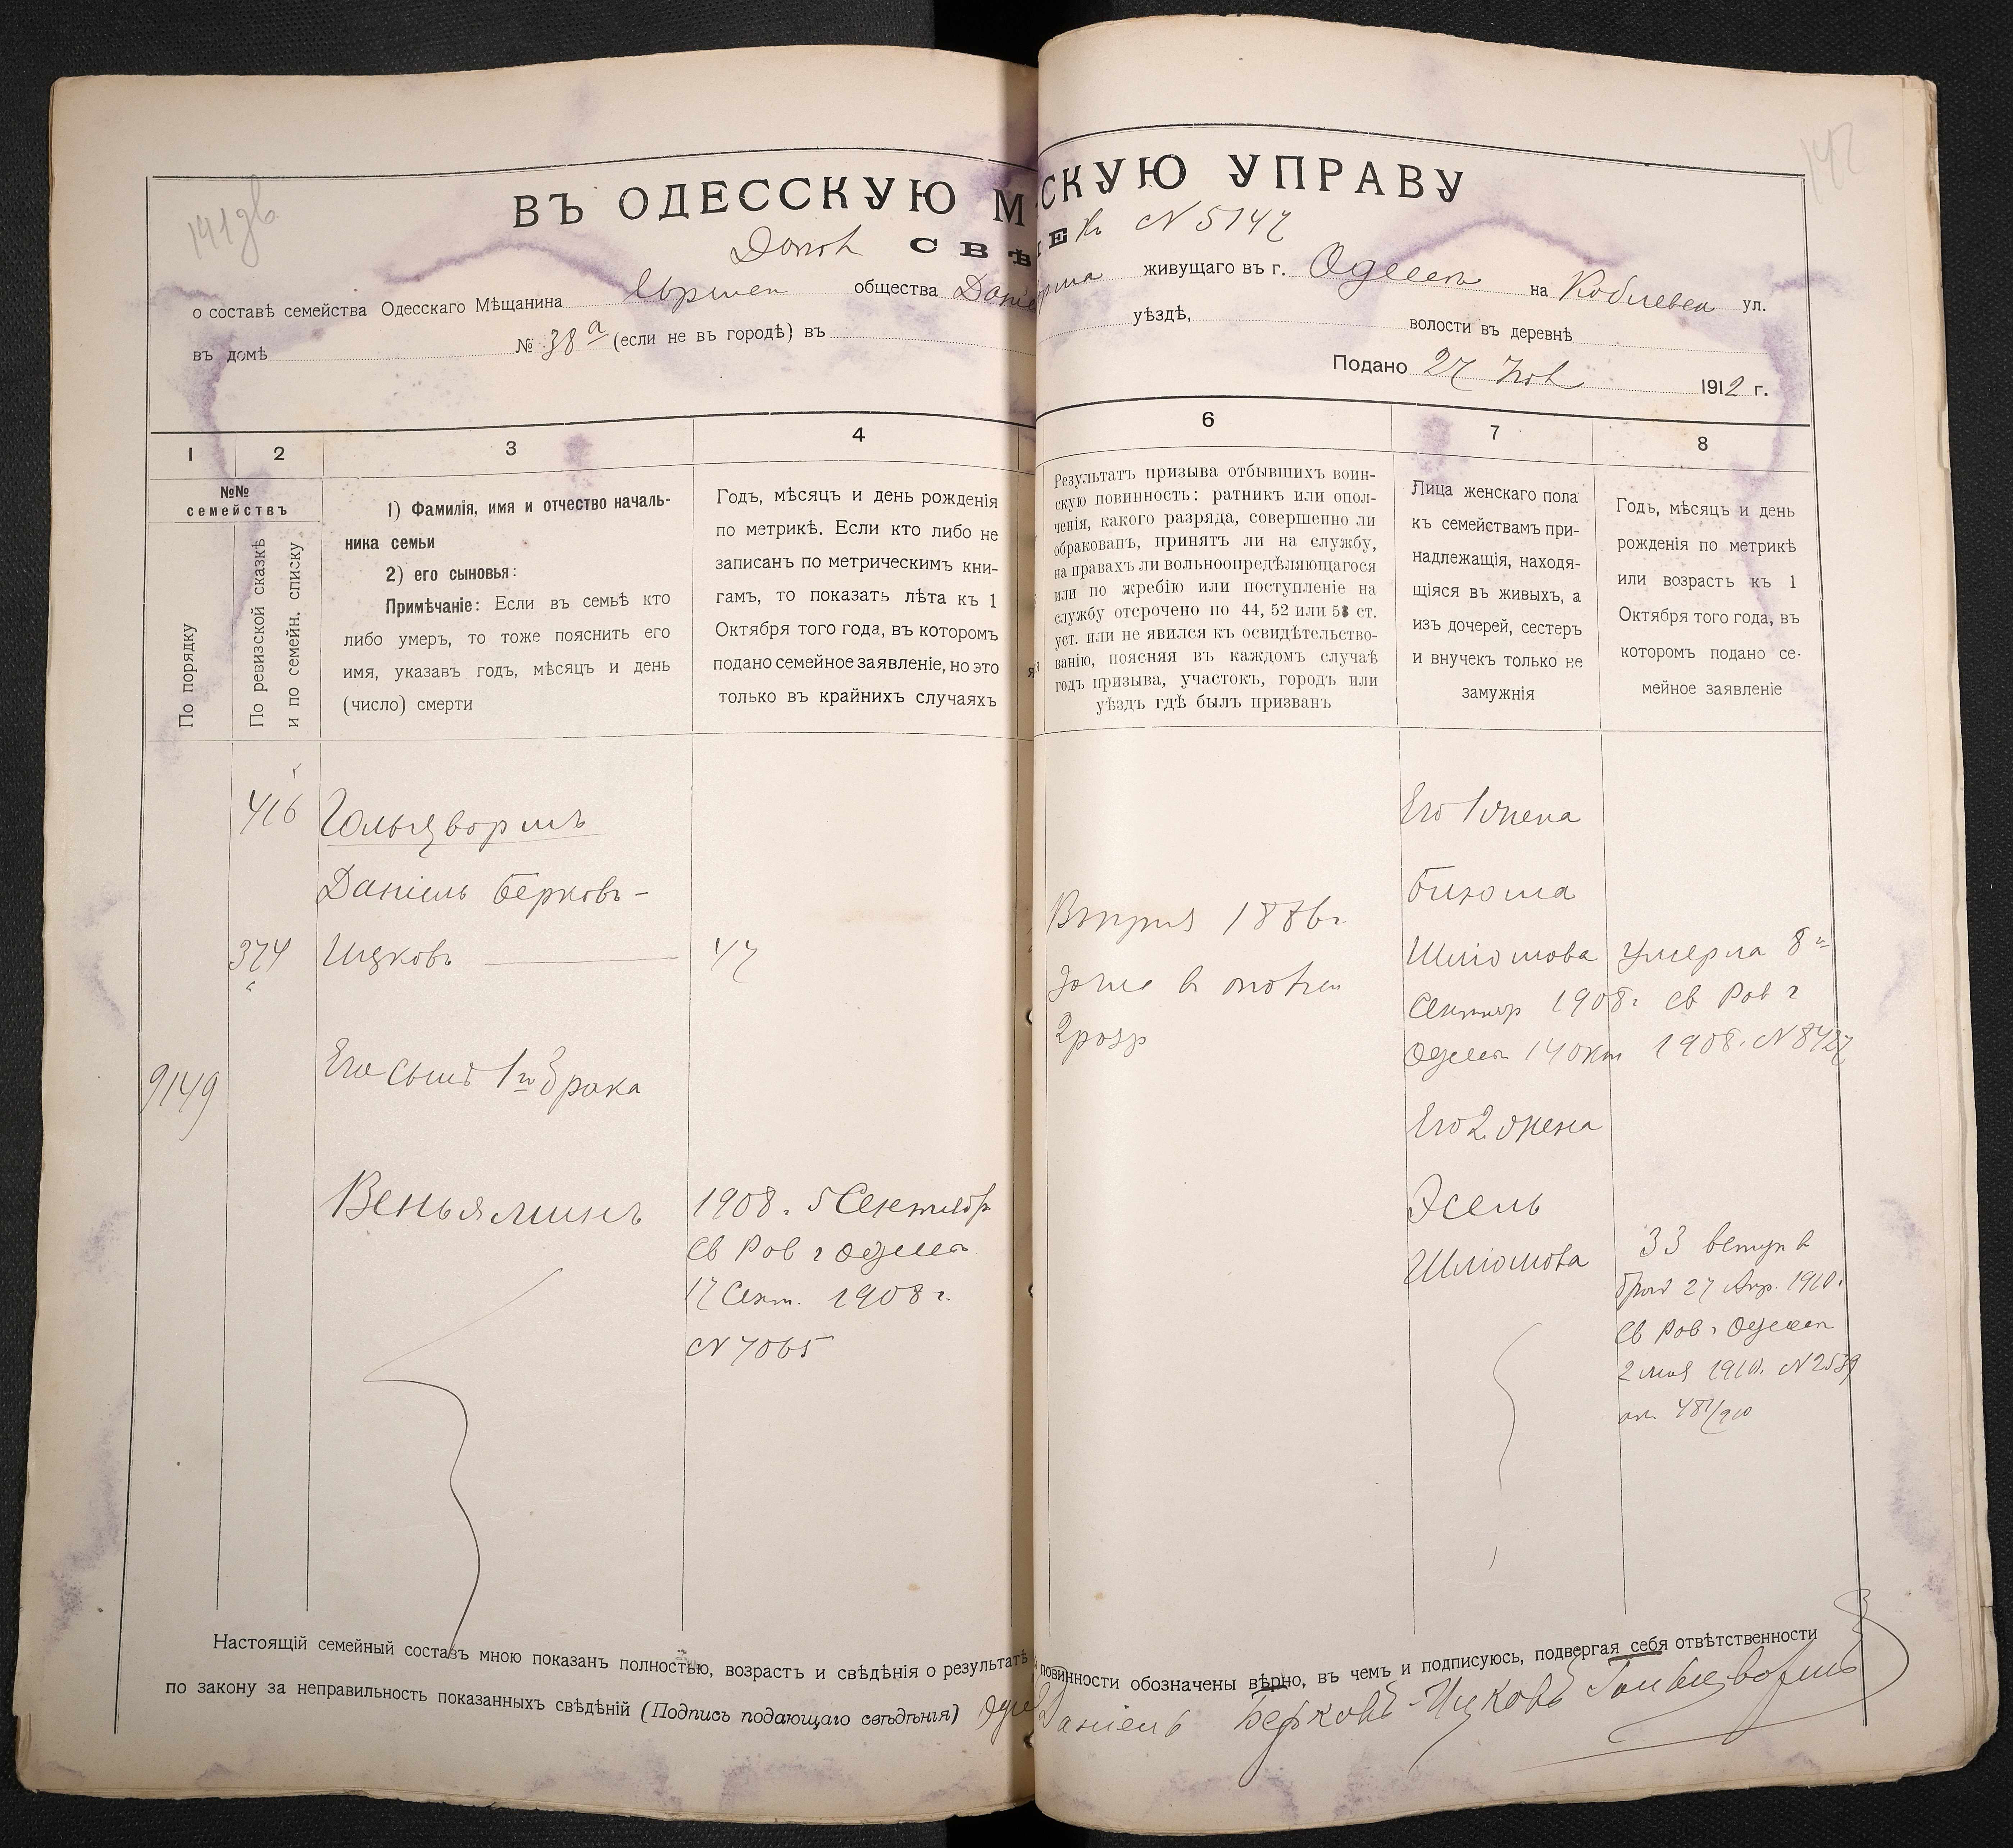 141 дв.
142
ВЪ ОДЕССКУЮ М
СКУЮ УПРАВУ
Допол СВѢ
№ 5147
о составѣ семейства Одесскаго Мѣщанина Еврейск общества Даніе
живущаго въ г. Одессѣ на Коблевск ул.
въ домѣ № 38а (если не въ городѣ) въ
уѣздѣ, волости въ деревнѣ
Подано 27 Ноя 1912 г.
1 2 3 4
6 7 8
№№
семействъ
По порядку
По ревизской сказкѣ
и по семейн. списку
1) Фамилія, имя и отчество началь-
ника семьи
2) его сыновья:
Примѣчаніе: Если въ семьѣ кто
либо умеръ, то тоже пояснить его
имя, указавъ годъ, мѣсяцъ и день
(число) смерти
Годъ, мѣсяцъ и день рожденія
по метрикѣ. Если кто либо не
записанъ по метрическимъ кни-
гамъ, то показать лѣта къ 1
Октября того года, въ которомъ
подано семейное заявленіе, но это
только въ крайнихъ случаяхъ
Результатъ призыва отбывшихъ воин-
скую повинность: ратникъ или опол-
ченія, какого разряда, совершенно ли
обракованъ, принятъ ли на службу,
на правахъ ли вольноопредѣляющагося
или по жребію или поступленіе на
службу отсрочено по 44, 52 или 53 ст.
уст. или не явился къ освидѣтельство-
ванію, поясняя въ каждомъ случаѣ
годъ призыва, участокъ, городъ или
уѣздъ гдѣ былъ призванъ
Лица женскаго пола
къ семействамъ при-
надлежащія, находя-
щіяся въ живыхъ, а
изъ дочерей, сестеръ
и внучекъ только не
замужнія
Годъ, мѣсяцъ и день
рожденія по метрикѣ
или возрастъ къ 1
Октября того года, въ
которомъ подано се-
мейное заявленіе
416 Гольцвормъ
Даніель Берковъ-
374 Ицковъ 47
9149
Его сынъ 1го брака
Веньяминъ
1908 г. 5 Сентябр
Св Рав г Одессы
17 Сент. 1908 г.
№ 7065
1886г
2 разр
Его 1 жена
Шліомова умерла 8го
Сентяр 1908 г Св Рав г
Одессы 14 Окт 1908. № 8427
Его 2 жена
Эсель
Шліомова
33 вступ в
брак 27 Апр. 1910 г.
Св Рав г Одессы
2 мая 1910. № 2539
Настоящій семейный составъ мною показанъ полностью, возрастъ и свѣдѣнія о результатѣ
повинности обозначены вѣрно, въ чемъ и подписуюсь, подвергая себя отвѣтственности
по закону за неправильность показанныхъ свѣдѣній (Подпись подающаго свѣдѣнія)
Даніель Берковъ-Ицковъ Гольцвормъ